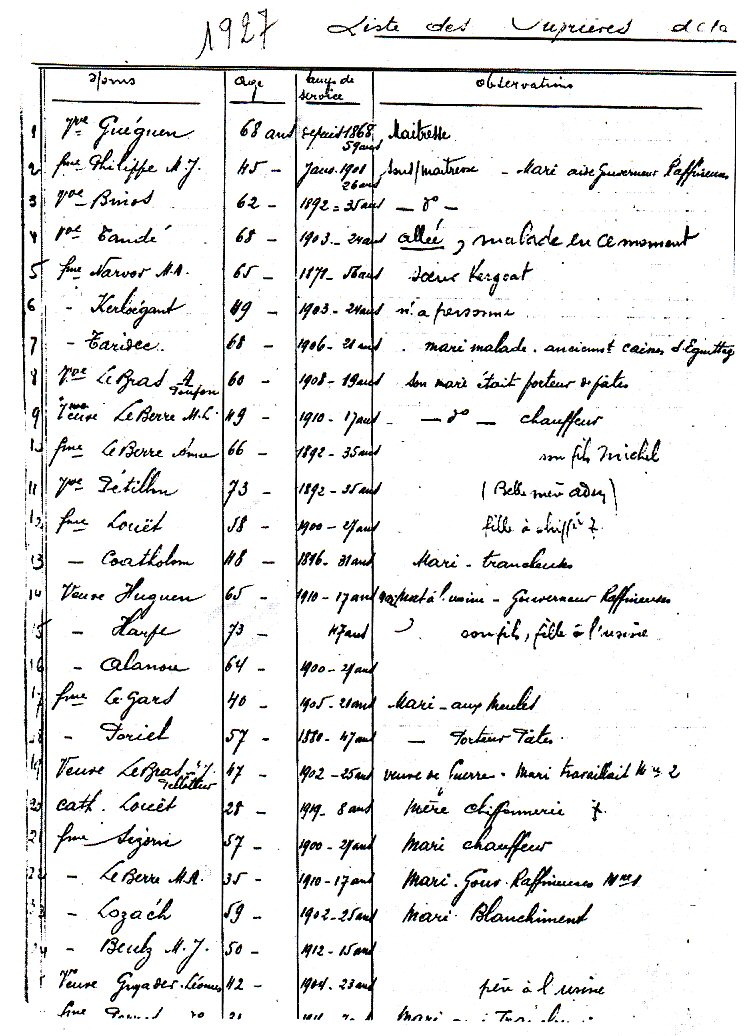 1927 Liste des Ouvrières de la
Noms age temps de service observations
1 Vve Guéguen 68 ans depuis 1868 59 ans Maitresse
2 fme Philippe M.J. 45 - Janv. 1901 26 ans Sous/maitresse - Mari aide Gouverneur Raffineuses
3 Vve Binos 62 - 1892 = 35 ans - do -
4 Vve Tandé 68 - 1903 - 24 ans allée, malade en ce moment
5 fme Narvor M.A. 65 - 1871 - 56 ans soeur Kergoat
6 - Kerloégant 49 - 1903 - 24 ans n'a personne
7 - Taridec 68 - 1906 - 21 ans mari malade. anciennt
8 Vve Le Bras A 60 - 1908 - 19 ans son mari était porteur de pâtes
9 Veuve Le Berre M.L. 49 - 1910 - 17 ans - do - chauffeur
10 fme Le Berre 66 - 1892 - 35 ans son fils Michel
11 Vve Pétillon 73 - 1892 - 35 ans (Belle mère
12 fme Louët 58 - 1900 - 27 ans fille à
13 - Coatholem 48 - 1896 - 31 ans Mari - trancheuses
14 Veuve Huguen 65 - 1910 - 17 ans à l'usine - Gouverneur Raffineuses
15 - Harpe 73 - 47 ans son fils, fille à l'usine
16 - Alanou 64 - 1900 - 27 ans
17 fme Le Gars 40 - 1905 - 21 ans Mari - aux Meules
18 - Toriel 57 - 1880 - 47 ans - Porteur Pâtes
19 Veuve Le Bras M.J. Pelletier 47 - 1902 - 25 ans veuve de Guerre - Mari travaillait Mne 2
20 Cath. Louët 28 - 1919 - 8 ans Mère chiffonnerie
21 fme Sizorn 57 - 1900 - 27 ans Mari chauffeur
22 - Le Berre M.A. 35 - 1910 - 17 ans Mari - Gouv. Raffineuses
23 - Lozach 59 - 1902 - 25 ans Mari Blanchiment
24 - Beulz M.J. 50 - 1912 - 15 ans
Veuve Guyader Léonus 42 - 1904 - 23 ans père à l'usine
fme